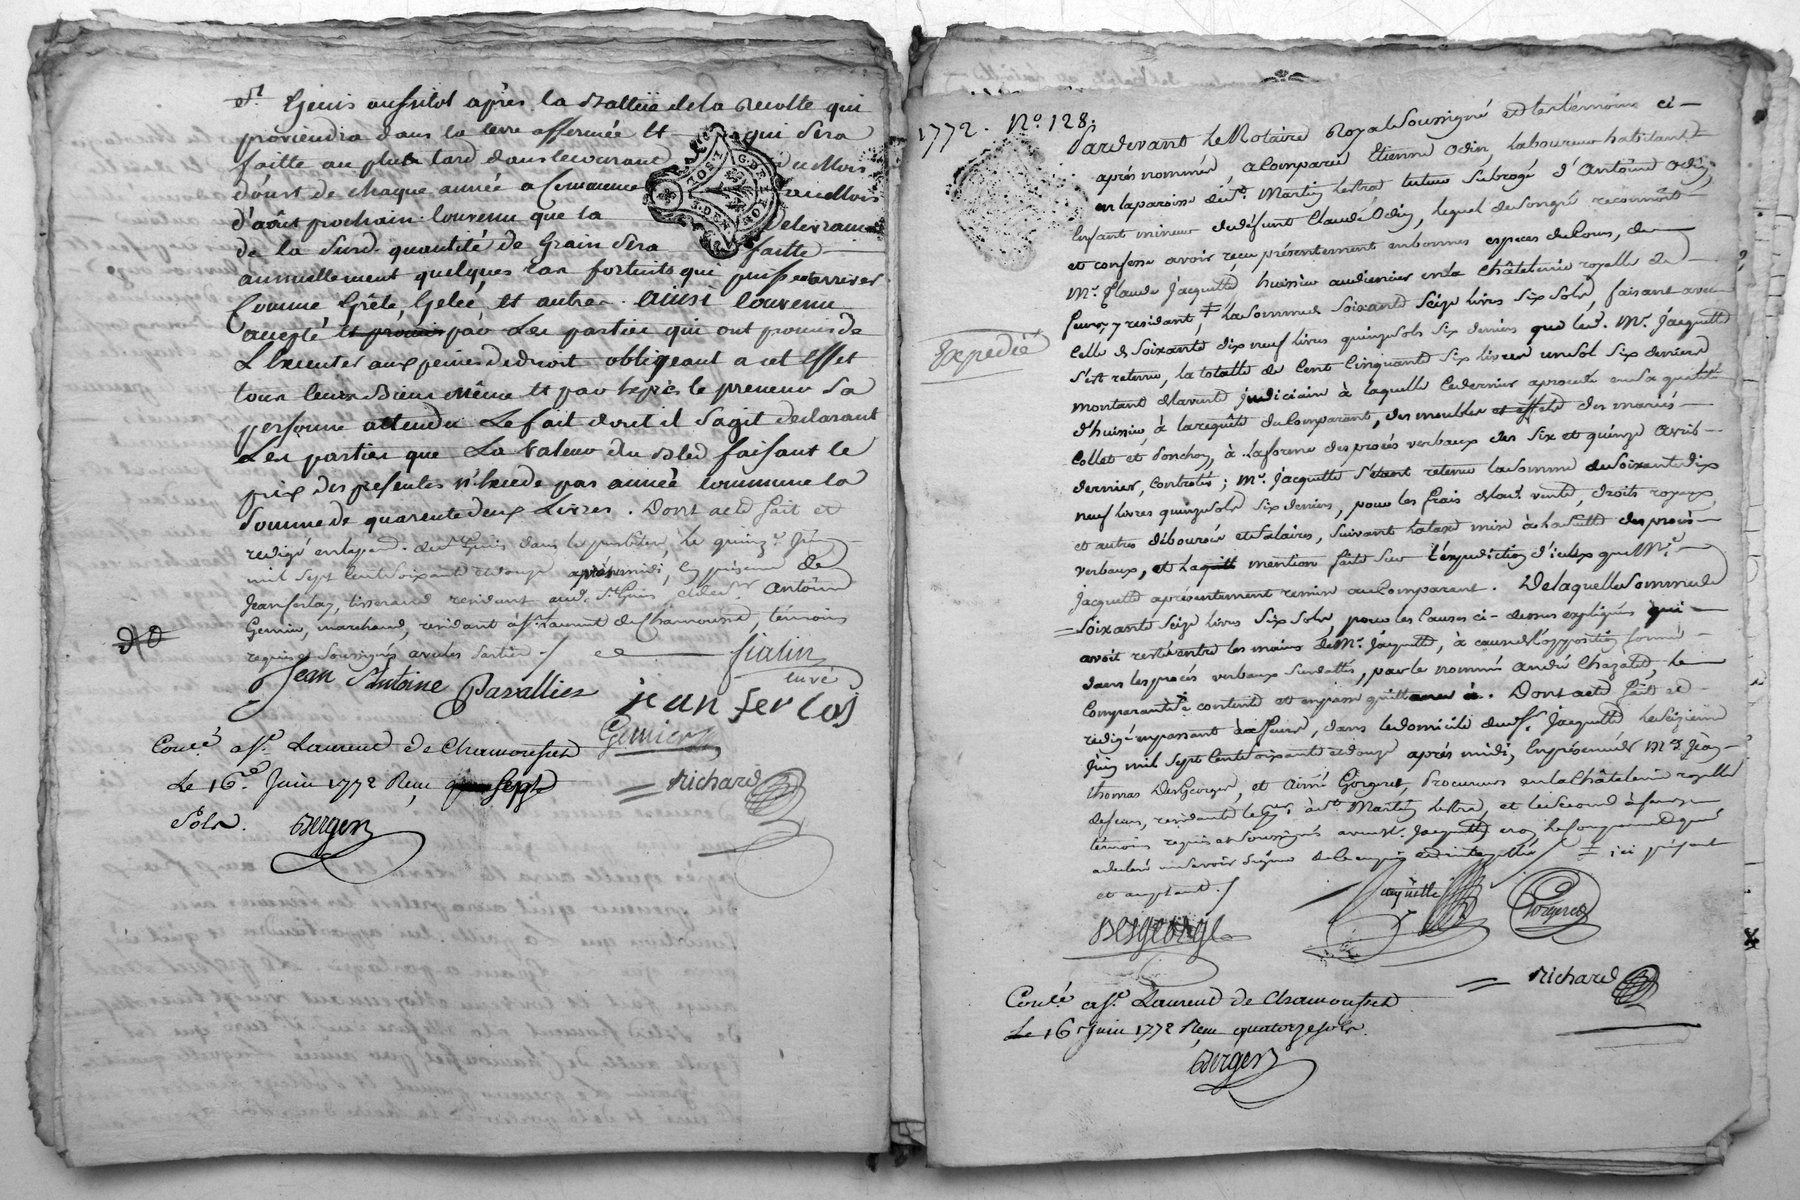 Genis aussitot après la Batteüe de la Recolte qui
proviendra dans la terre affermée Et qui Sera
faitte au plus tard dans le courant du Mois
d'oust de chaque année a Commencer au Mois
d'août prochain. Convenu que la Delivrance
de la Susd. quantité de Grain Sera faitte
annuellement quelques cas fortuits qui puisse arriver
Comme Grêle, Gelée, Et autres. Ainsi Convenu
accepté Et promis par Les parties qui ont promis de
L'Executer aux peines de droit obligeant a cet Effet
tous leurs Biens Même Et par Exprès le preneur Sa
personne attendu Le fait dont il S'agit declarant
Les parties que La Valeur du Bled faisant le
prix des presentes N'Excede pas année Commune la
Somme de quarente deux Livres. Dont acte fait et
redigé dans le presbitere, le quinze Juin
mil Sept Cent Soixante et douze après midi, En présence de
Jean ferlay, tisserand residant aud. St. Genis et de Sr. Antoine
Genier, marchand, residant a St. Laurent de Chamousset, témoins
requis et Soussignés avec les Parties
fialin
curé
Jean Antoine Pavallier
jean ferlas
Genier
Conlé. a St. Laurend de Chamousset
Richard
Le 16e. Juin 1772 Reçu Sept
Sols.
Berger
1772. No. 128.
Pardevant Le Notaire Royal Soussigné et les témoins ci-
après nommés, a Comparu Etienne Odin, laboureur habitant
en la paroisse de St. Martin Lestra tuteur Subrogé d'Antoine Odin,
Enfant mineur de defunt Claude Odin, lequel de Son gré reconnoit
et confesse avoir reçu présentement en bonnes especes de Cours, de
Mr. Claude Jacquette huissier audiencier en la Châtelenie royalle de
feurs, y residant, la Somme de Soixante Seize livres Six Sols, faisant avec
Celle de Soixante dix neuf livres quinze Sols Six deniers que led. Mr. Jacquette
S'est retenue, la totalle de Cent Cinquante Six livres un Sol Six deniers
Expedié
montant de la vente judiciaire à laquelle ce dernier a procédé en Sa qualité
d'huissier, à la requête du Comparant, des meubles et effets des mariés
Collet et Ponchon, à la forme des procès verbaux des Six et quinze Avril
dernier, Controlés; Mr. Jacquette S'étant retenu la Somme de Soixante dix
neuf livres quinze Sols Six deniers, pour les frais de lad. vente, droits royaux,
et autres débourcés et Salaires, Suivant la taxe mise à la Suitte des procès
verbaux, et laquelle mention faite Sur l'expedition d'iceux que Mr.
Jacquette a présentement remise au Comparant. De laquelle Somme de
Soixante Seize livres Six Sols, pour les Causes ci-dessus expliquées qui
avoit resté entre les mains de Mr. Jacquette, à cause de l'opposition formée
dans les procès verbaux Susdattés, par le nommé André Chazald, le
Comparant Se contente et en passe quittance. Dont acte fait et
redigé en passant à feurs, dans le domicile dud. Sr. Jacquette le Seizieme
Juin mil Sept Cent Soixante et douze après midi, En présence de Mr. Jean
thomas DesGeorges, et Aimé Gorgeret, Procureurs en la Châtelenie royalle
de feurs, residants le 1er. à St. Martin lestra, et le Second à feurs
témoins requis et Soussignés avec Sr. Jacquette
a declaré ne Savoir Signer de ce enquis et interpellé ici présent
et acceptant.
Jacquette
Gorgeret
DESGEORGE
Richard
Conlé. a St. Laurend de Chamousset
Le 16e Juin 1772 Reçu quatorze Sols.
Berger